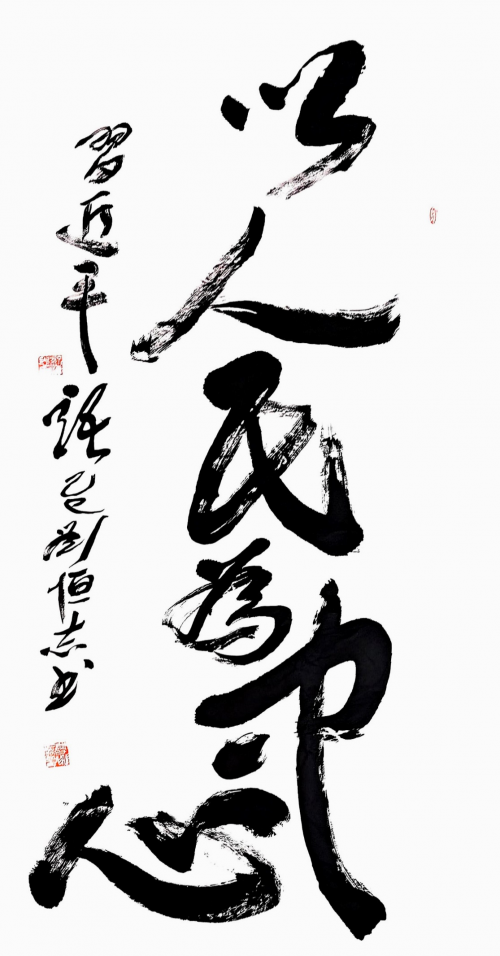 以人民為中心
習近平語乙巳劉恒志書